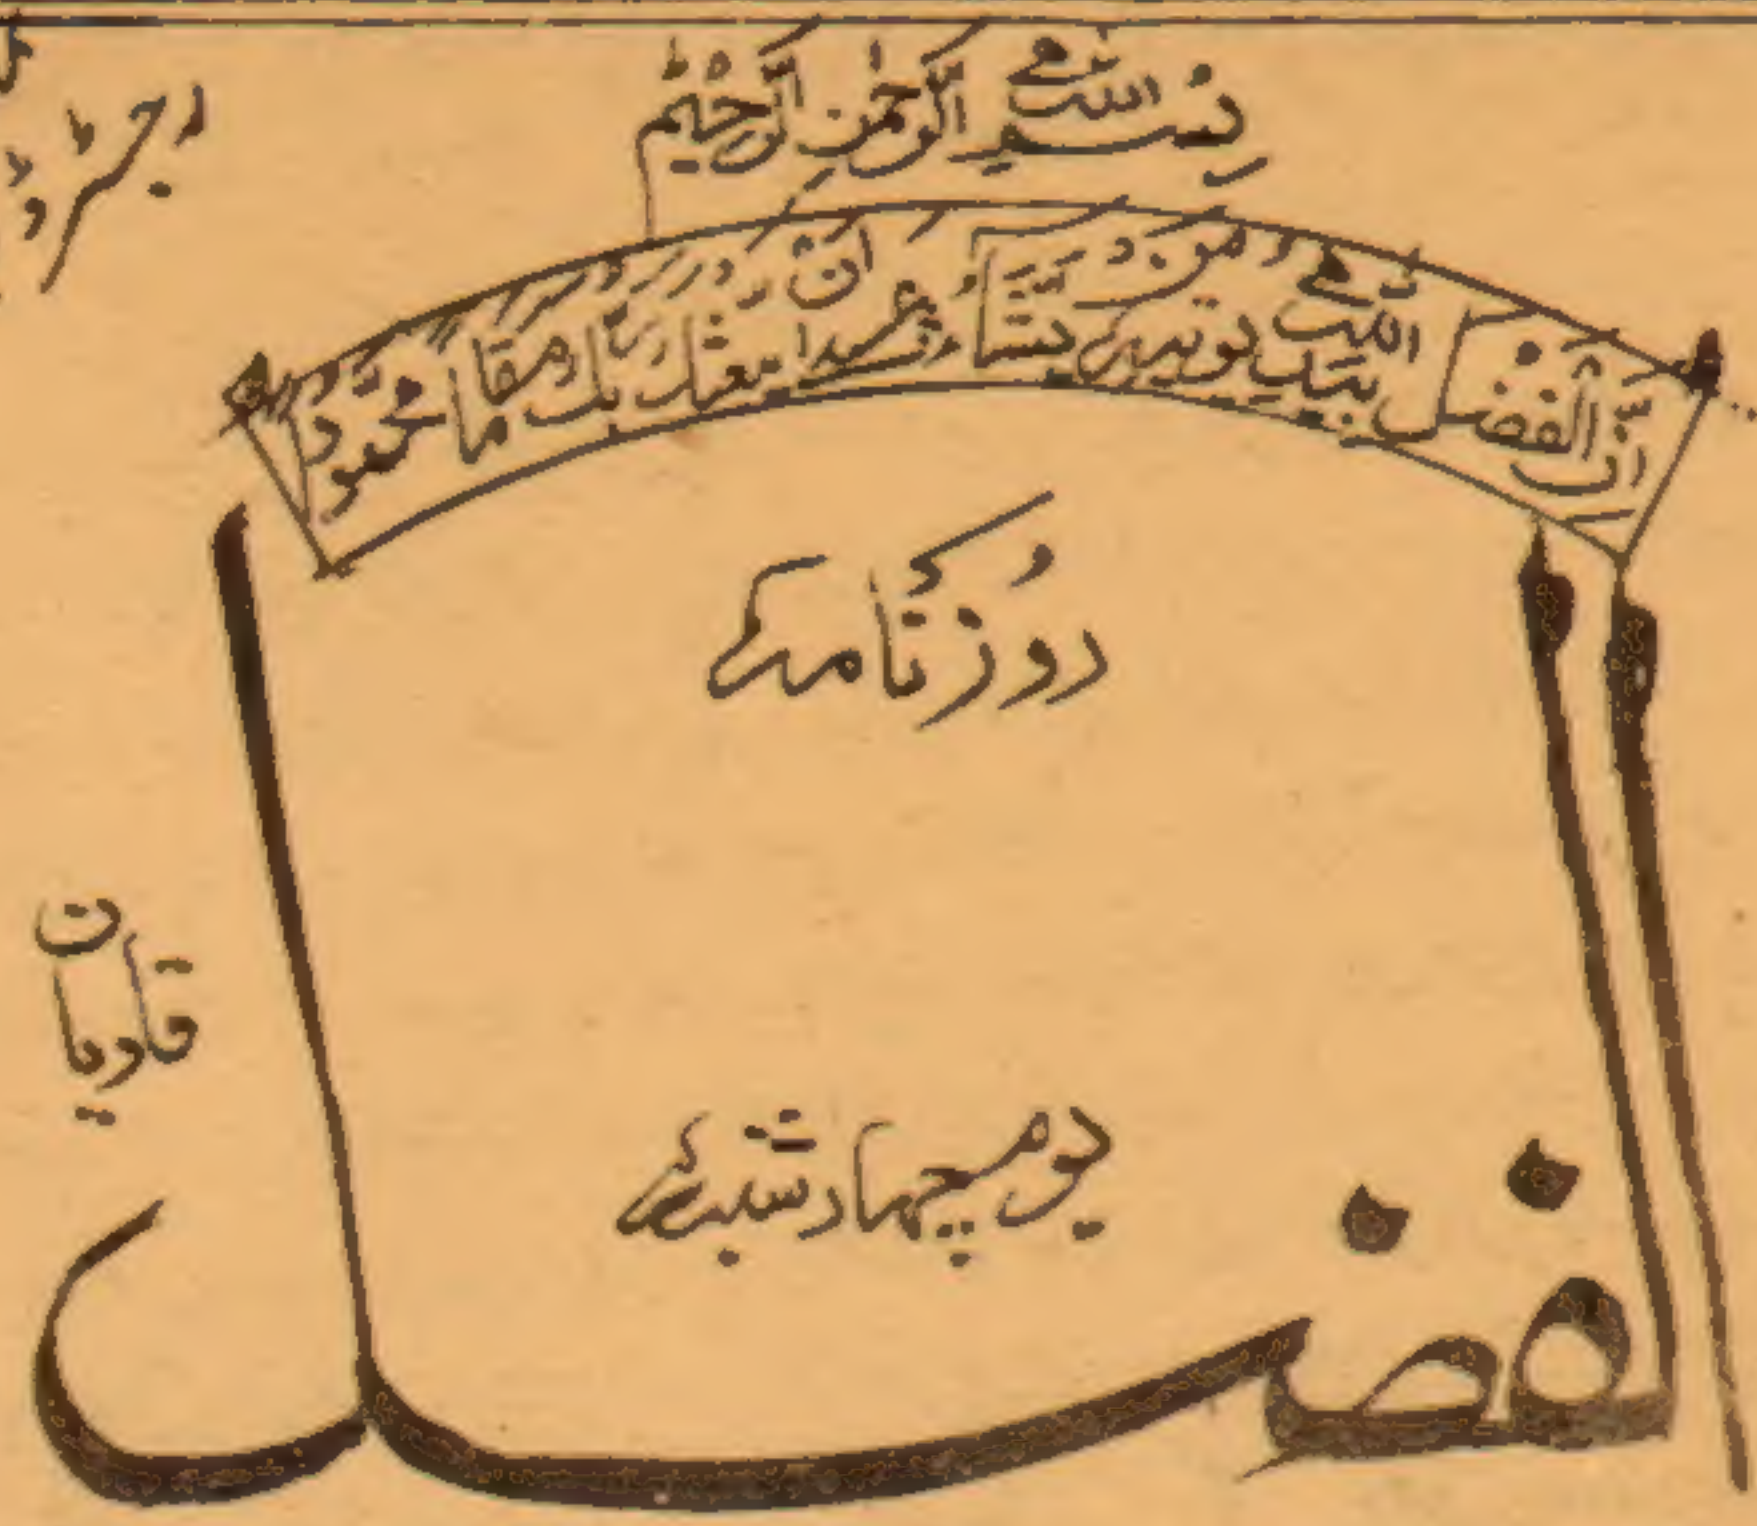 بسم اللہ الرحمن الرحیم
رجسٹرڈ
ان الفضل بید اللہ یوتیہ من یشاء عسی ان یبعثک ربک مقاما محمودا
روزنامہ
قادیان
یوم چہارشنبہ
الفضل